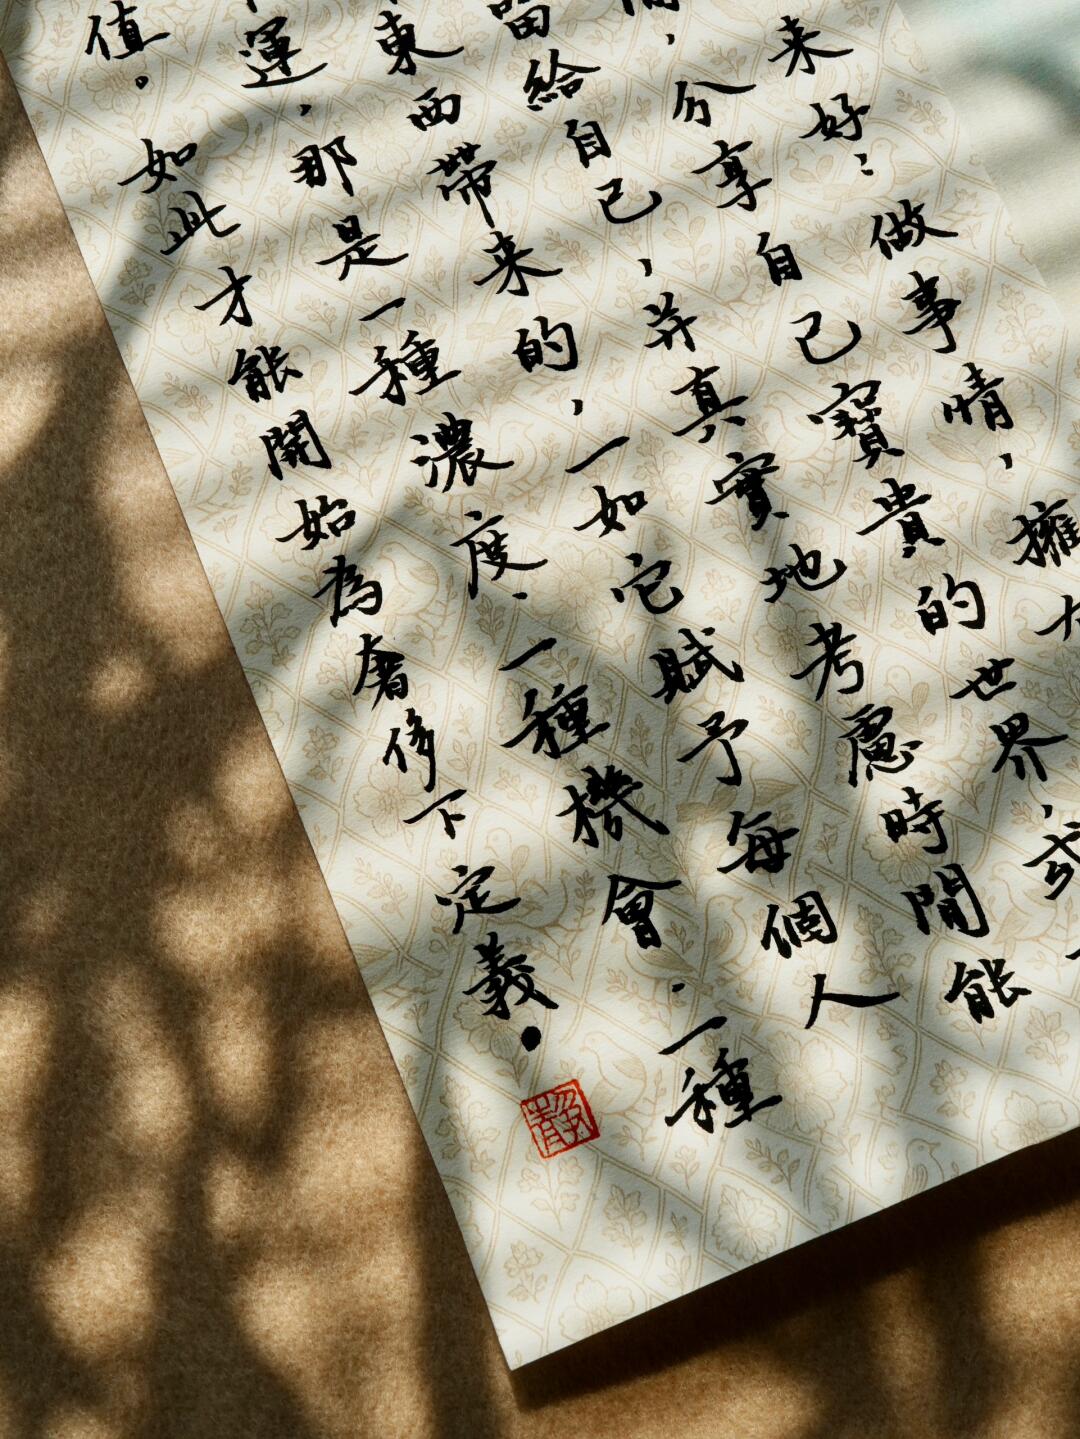 来好：做事情，擁
，分享自己寶貴的世界，或
留給自己，并真實地考慮時間能
東西帶来的，一如它賦予每個人
運，那是一種濃度．一種機會．一種
值。如此才能開始為奢侈下定義．
靜